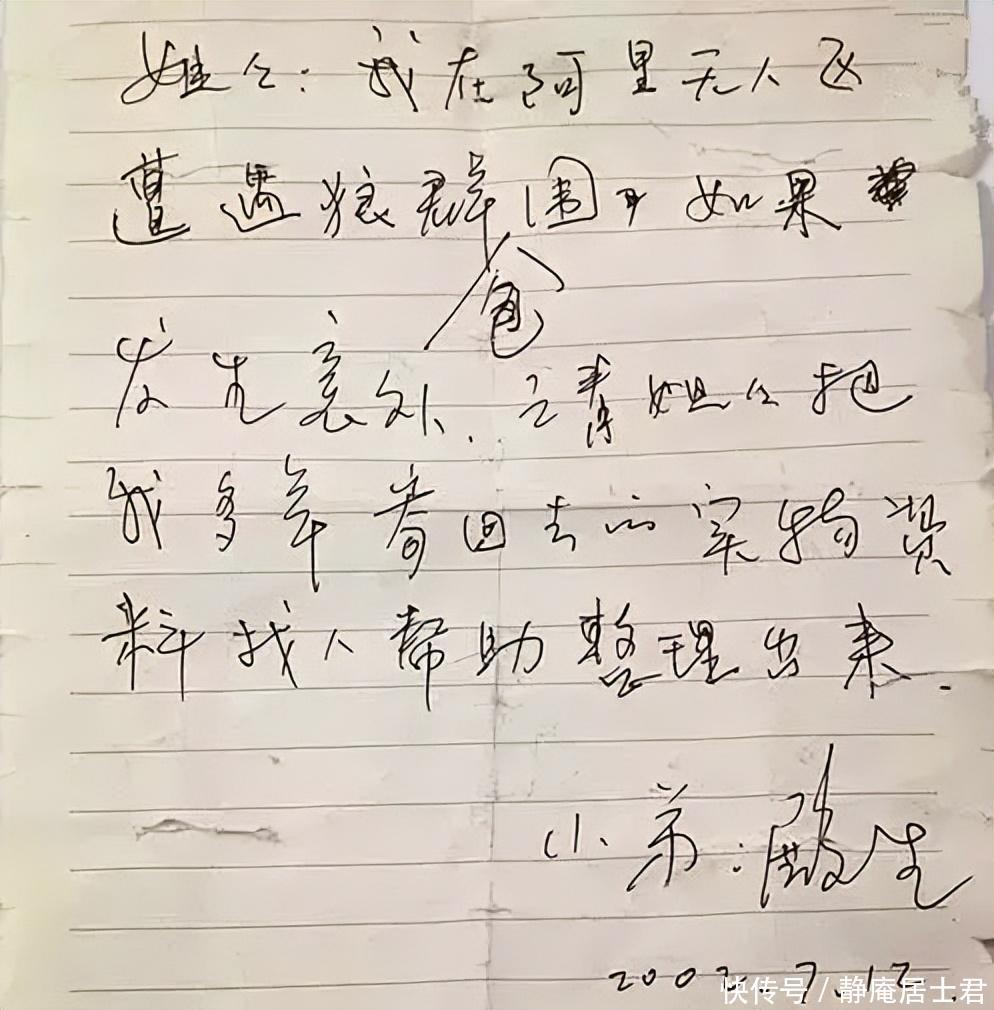 姐々：我在阿里无人区
遭遇狼群包围了如果
发生意外、请姐々把
我多年寄回去的实物资
料找人帮助整理出来.
小弟：殿生
2002.7.12
快传号/静庵居士君